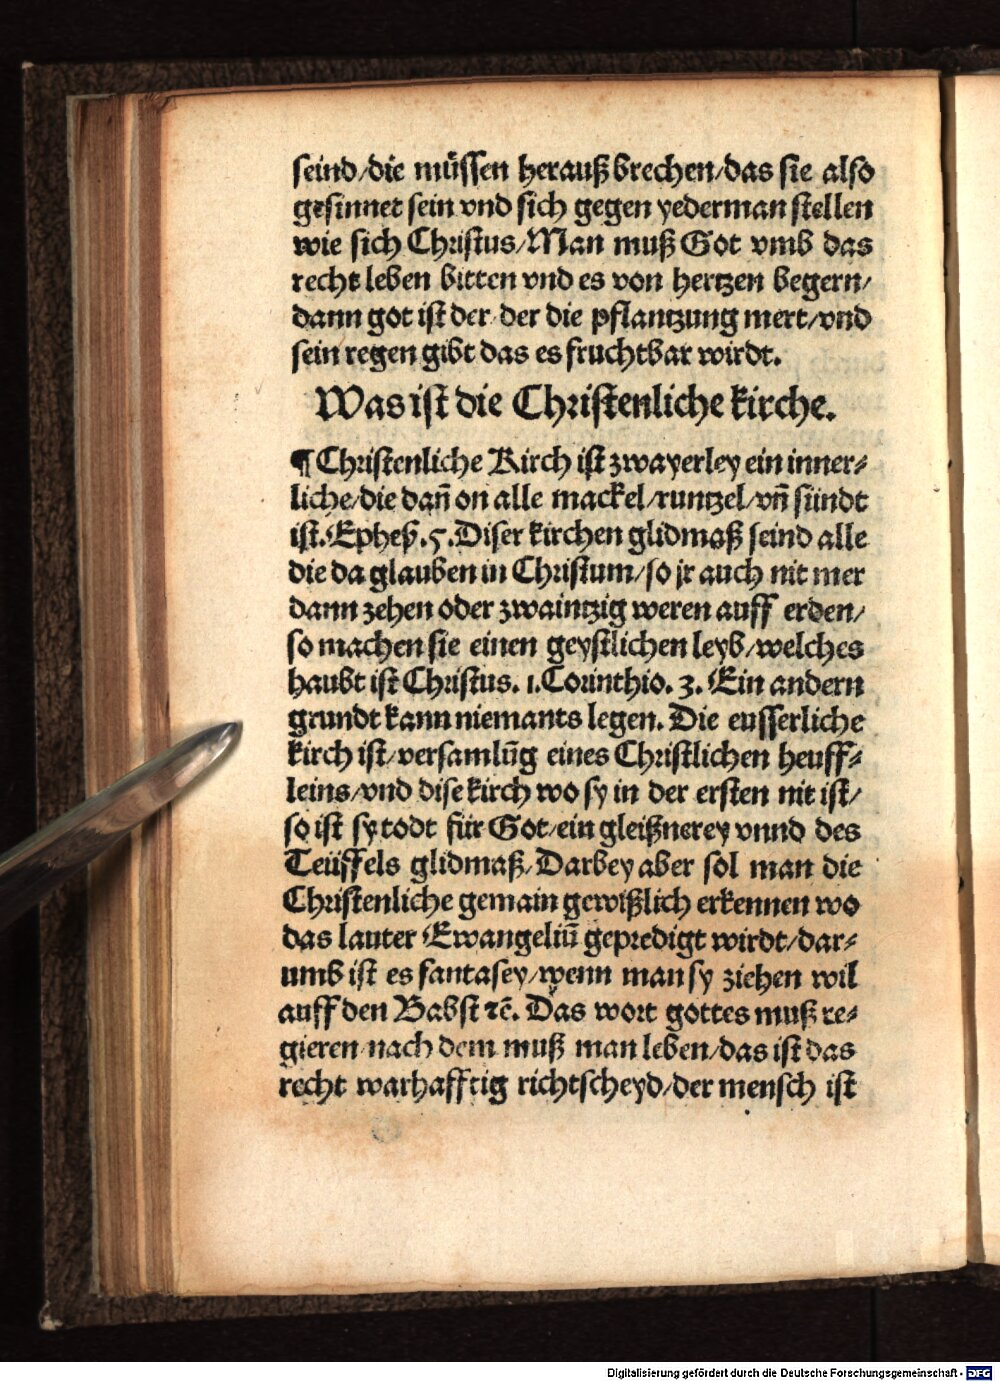 seind/die müssen herauß brechen/das sie also
gesinnet sein vnd sich gegen yederman stellen
wie sich Christus/Man muß Got vmb das
recht leben bitten vnd es von hertzen begern/
dann got ist der der die pflantzung mert/vnd
sein regen gibt das es fruchtbar wirdt.
Was ist die Christenliche kirche.
¶ Christenliche Kirch ist zwayerley ein inner⸗
liche/die dañ on alle mackel/runtzel/vñ sündt
ist. Ephes. 5. Diser kirchen glidmaß seind alle
die da glauben in Christum/so jr auch nit mer
dann zehen oder zwaintzig weren auff erden/
so machen sie einen geystlichen leyb/welches
haubt ist Christus. 1. Corinthio. 3. Ein andern
grundt kann niemants legen. Die eusserliche
kirch ist/versamlūg eines Christlichen heuff⸗
leins/vnd dise kirch wo sy in der ersten nit ist/
so ist sy todt für Got/ein gleißnerey vnnd des
Teüffels glidmaß/Darbey aber sol man die
Christenliche gemain gewißlich erkennen wo
das lauter Ewangeliū gepredigt wirdt/dar⸗
umb ist es fantasey/wenn man sy ziehen wil
auff den Babst ⁊c̄. Das wort gottes muß re⸗
gieren nach dem muß man leben/das ist das
recht warhafftig richtscheyd/der mensch ist
Digitalisierung gefördert durch die Deutsche Forschungsgemeinschaft - DFG